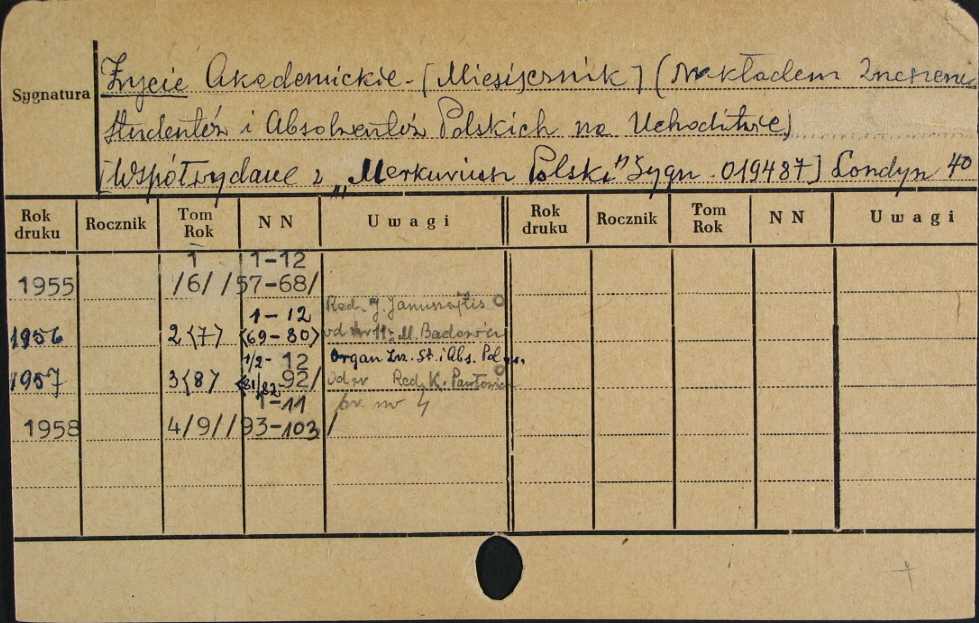 Sygnatura
Życie Akademickie - [Miesięcznik] (Nakładem Zrzeszenia
Studentów i Absolwentów Polskich na Uchodźtwie)
[Współwydane z „Merkuriush Polski" Sygn. 019487] Londyn 40
Rok druku Rocznik Tom Rok NN Uwagi Rok druku Rocznik Tom Rok NN Uwagi
1 1-12
1955 /6/ /57-68/
1-12 Red. J.
1956 2<7> <69-80> od nr 11: M.
1/2-12 Organ Zrz. St. i Abs. Pol
1957 3<8> <81/82 92/ Red. K.
1-11 nr 4
1958 4/9/ /93-103/